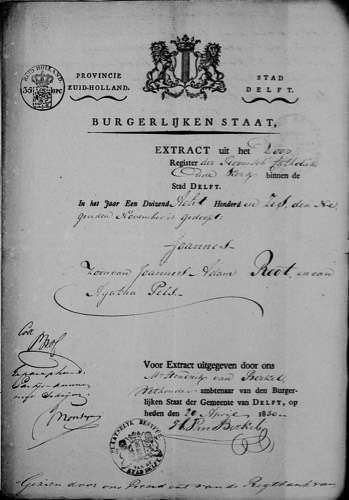 ZUID-HOLLAND
35
PROVINCIE
ZUID-HOLLAND.
STAD
DELFT.
BURGERLIJKEN STAAT,
EXTRACT uit het Doop
Register der Roomsch Catholieke
Oude Kerk binnen de
Stad DELFT.
In het Jaar Een Duizend Acht Honderd en Zes, den Ne-
genden November is gedoopt
Joannes
Zoon van Joannes Adam Root, en van
Agatha Pels.
Voor Extract uitgegeven door ons
Mr Hendrik van Berkel,
Wethouder ambtenaar van den Burger-
lijken Staat der Gemeente van DELFT, op
heden den 20 April 1830.
Gezien door ons President van de Regtbank van